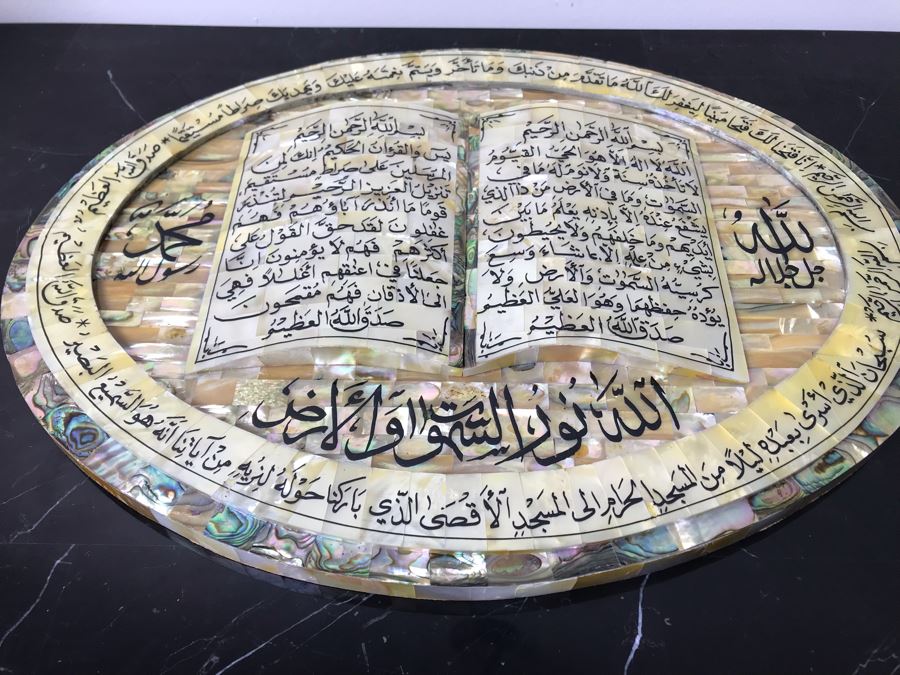 بسم الله الرحمن الرحيم
الله لا اله الا هو الحي القيوم
لا تأخذه سنة ولا نوم له ما في
السموات وما في الأرض من ذا الذي
يشفع عنده الا باذنه يعلم ما بين
أيديهم وما خلفهم ولا يحيطون
بشيء من علمه الا بما شاء وسع
كرسيه السموات والأرض ولا
يؤده حفظهما وهو العلي العظيم
صدق الله العظيم
بسم الله الرحمن الرحيم
يس والقرآن الحكيم انك لمن
المرسلين على صراط مستقيم
تنزيل العزيز الرحيم لتنذر
قوما ما انذر اباؤهم فهم
غفلون لقد حق القول على
اكثرهم فهم لا يؤمنون انا
جعلنا في اعنقهم اغللا فهي
الى الأذقان فهم مقمحون
صدق الله العظيم
الله جل جلاله
محمد رسول الله
الله نور السموات والأرض
بسم الله الرحمن الرحيم * انا فتحنا لك فتحا مبينا ليغفر لك الله ما تقدم من ذنبك وما تأخر ويتم نعمته عليك ويهديك صراطا مستقيما * صدق الله العظيم
بسم الله الرحمن الرحيم * سبحان الذي أسرى بعبده ليلا من المسجد الحرام الى المسجد الأقصى الذي باركنا حوله لنريه من آياتنا انه هو السميع البصير * صدق الله العظيم